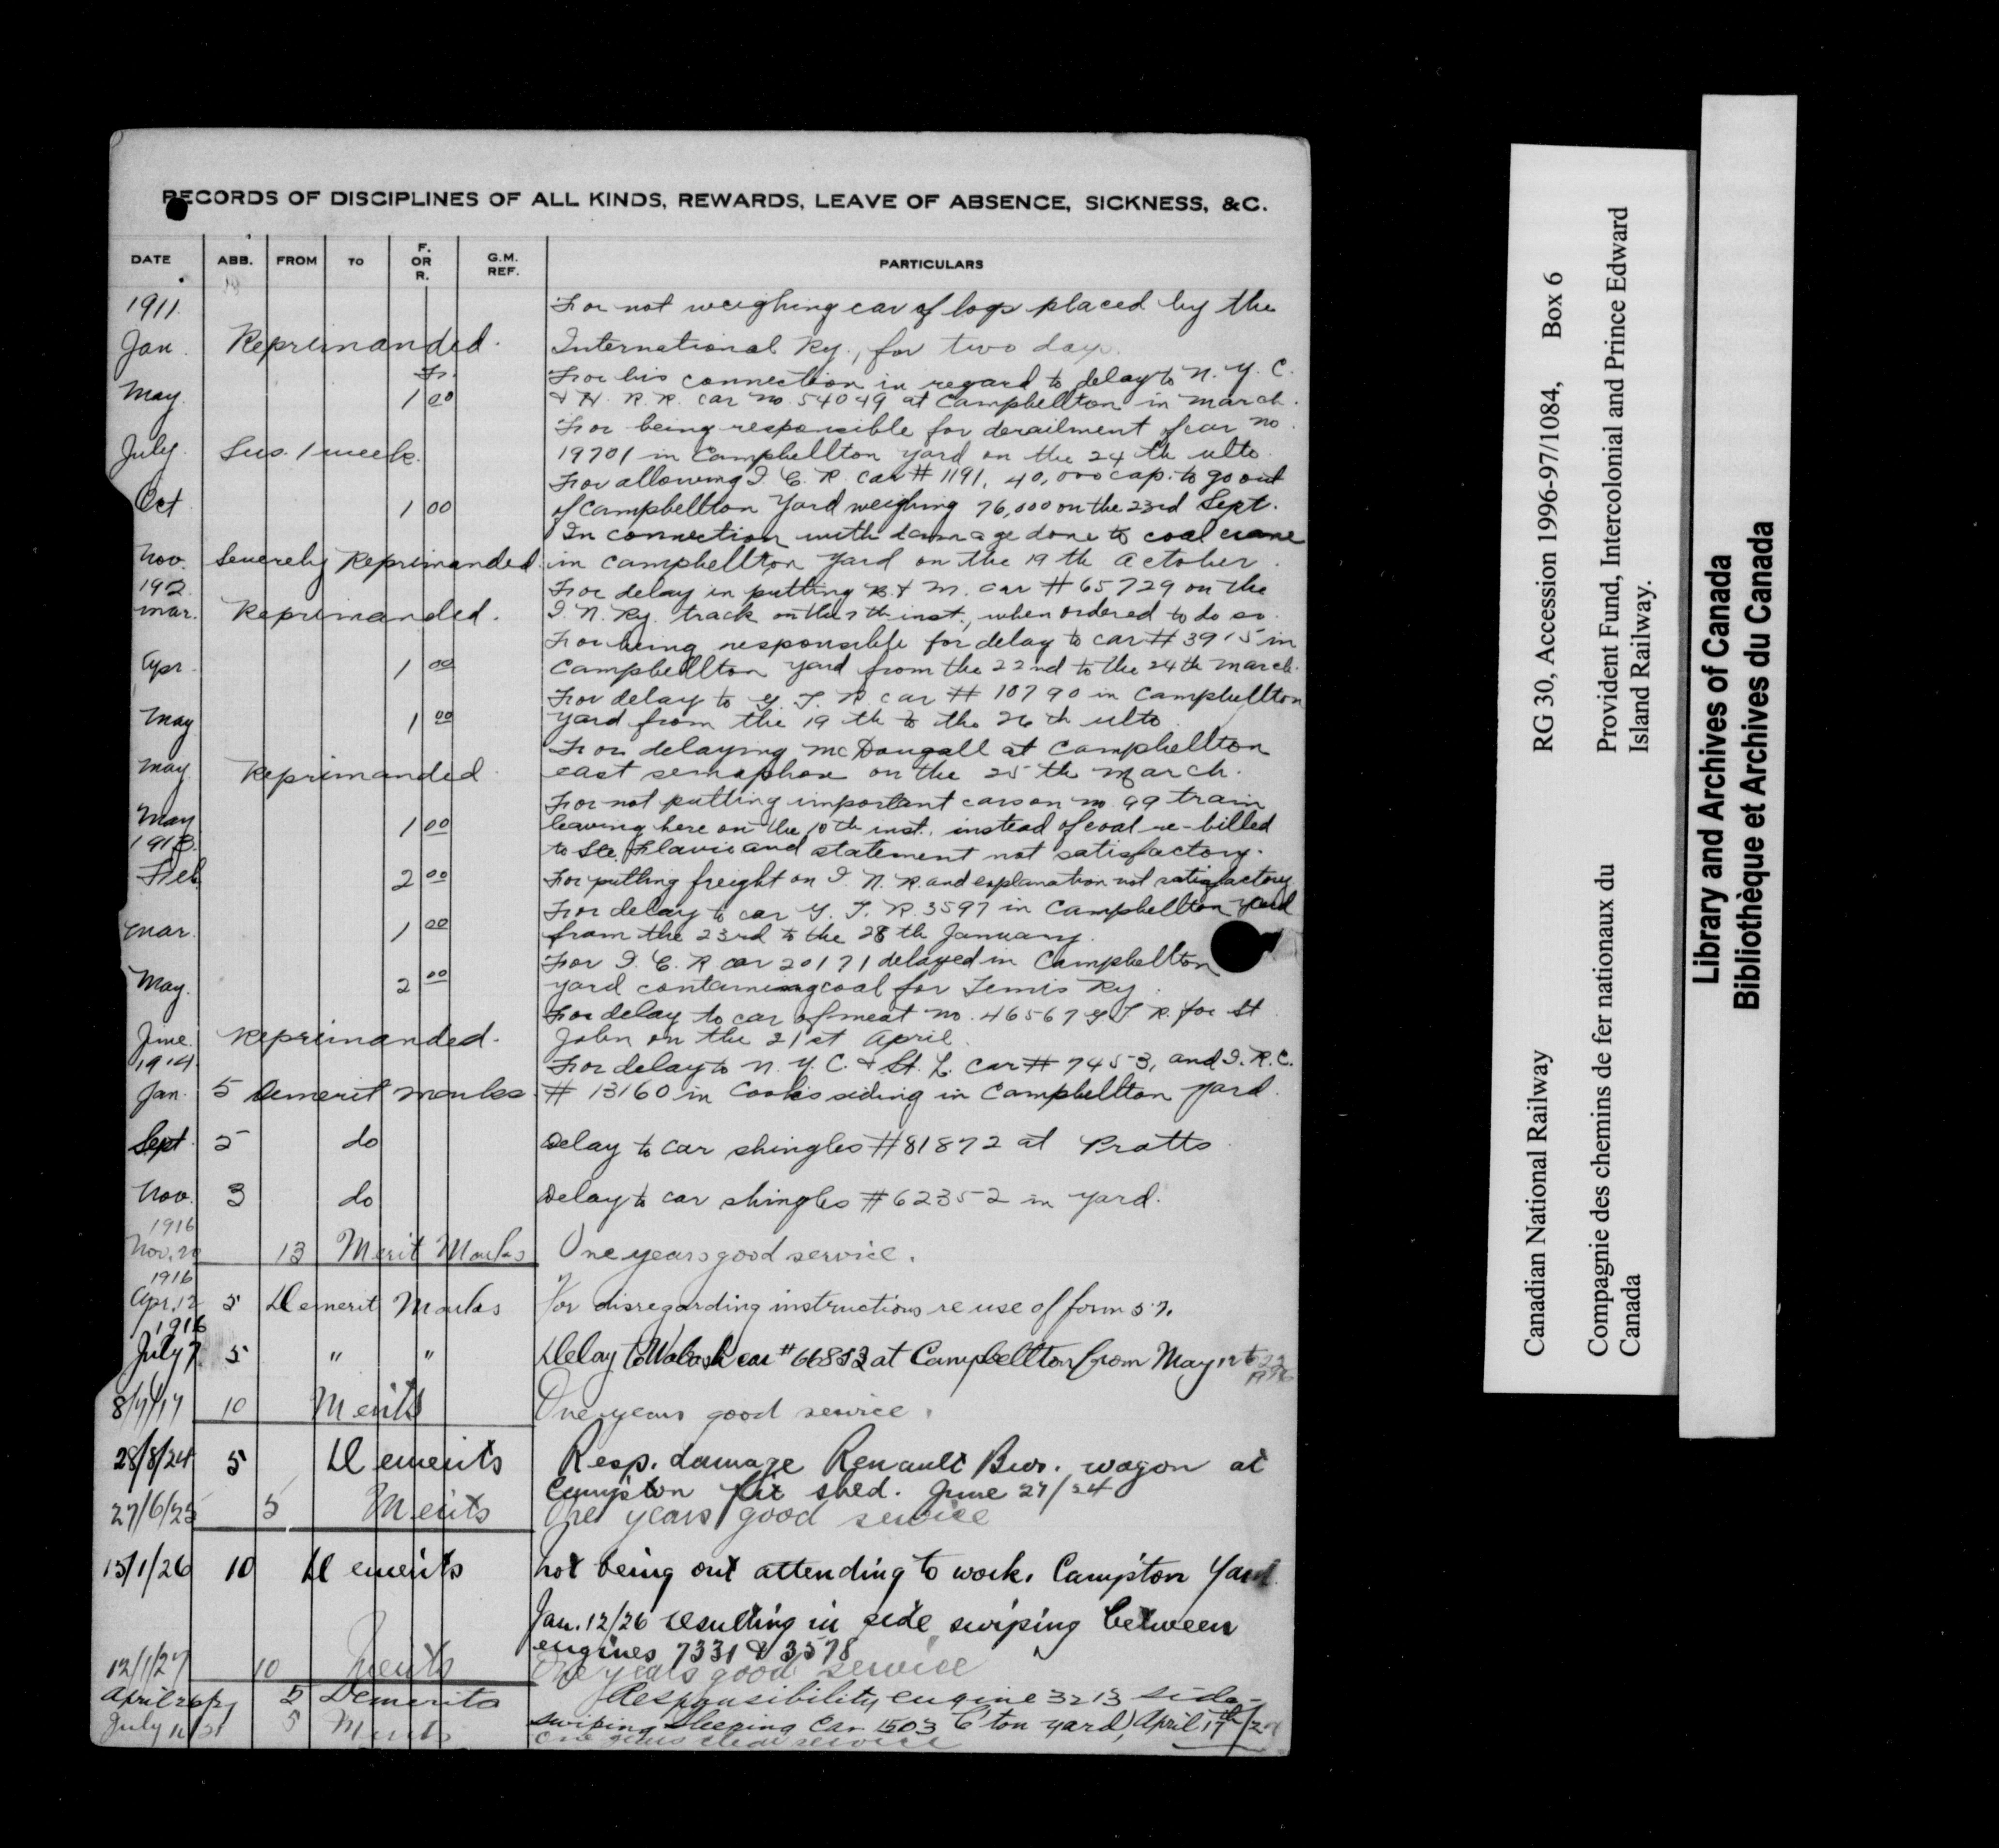 RECORDS OF DISCIPLINES OF ALL KINDS, REWARDS, LEAVE OF ABSENCE, SICKNESS, &C.
DATE ABB. FROM TO F. OR R. G.M. REF. PARTICULARS
1911. For not weighing car of logs placed by the
Jan. Reprimanded. International Ry., for two days.
Fr. For his connection in regard to delay to N. Y. C.
May 1 00 & H. R. R. car no. 54049 at Campbellton in march.
For being responsible for derailment of car no.
July. Sus. 1 week. 19701 in Campbellton yard on the 24th ulto.
For allowing I. C. R. car # 1191, 40,000 cap. to go out
Oct 1 00 of Campbellton Yard weighing 76,000 on the 23rd Sept.
In connection with damage done to coal crane
Nov. Severely Reprimanded. in Campbellton Yard on the 19th October.
192 For delay in putting B. & M. car # 65729 on the
mar. Reprimanded. I. N. Ry. track on the 7th inst., when ordered to do so.
For being responsible for delay to car # 3915 in
Apr. 1 00 Campbellton yard from the 22nd to the 24th march.
For delay to G. T. R. car # 10790 in Campbellton
May 1 00 yard from the 19th to the 26th ulto.
For delaying McDougall at Campbellton
May Reprimanded east semaphore on the 25th March.
For not putting important cars on no. 99 train
May 1 00 leaving here on the 10th inst. instead of coal re-billed
1913. to Ste. Flavie and statement not satisfactory.
Feb 2 00 For putting freight on I. N. R. and explanation not satisfactory
For delay to car G. T. R. 3597 in Campbellton yard
mar. 1 00 from the 23rd to the 28th January.
For I. C. R car 20171 delayed in Campbellton
May. 2 00 yard containing coal for Temis Ry.
For delay to car of meat no. 46567 G. T. R. for St
June. Reprimanded. John on the 21st April.
1914. For delay to N. Y. C. & St. L. car # 7453, and I. R. C.
Jan. 5 Demerit marks. # 13160 in Cooks siding in Campbellton yard.
Sept. 5 do Delay to car shingles #81872 at Pratts
Nov. 3 do Delay to car shingles #62352 in yard.
1916
Nov. 20 13 Merit Marks One years good service.
1916
Apr. 12 5 Demerit Marks For disregarding instructions re use of form 57.
1916
July 7 5 " " Delay to Wabash car # 66852 at Campbellton from May 12 to 22 1916
8/7/17 10 Merits One years good service.
28/8/24 5 Demerits Resp. damage Renault Bros. wagon at
Camp'ton frt shed. June 27/24
27/6/25 5 Merits One years good service
13/1/26 10 Demerits not being out attending to work. Camp'ton Yard.
Jan. 12/26 resulting in side swiping between
engines 7331 & 3578
12/1/27 10 Merits One years good service
April 26/27 5 Demerits Responsibility engine 3213 side-
swiping sleeping car 1503 C'ton yard, April 17th/27
July 5 Merits One years clear service
Canadian National Railway RG 30, Accession 1996-97/1084, Box 6
Compagnie des chemins de fer nationaux du Canada
Provident Fund, Intercolonial and Prince Edward Island Railway.
Library and Archives of Canada
Bibliothèque et Archives du Canada